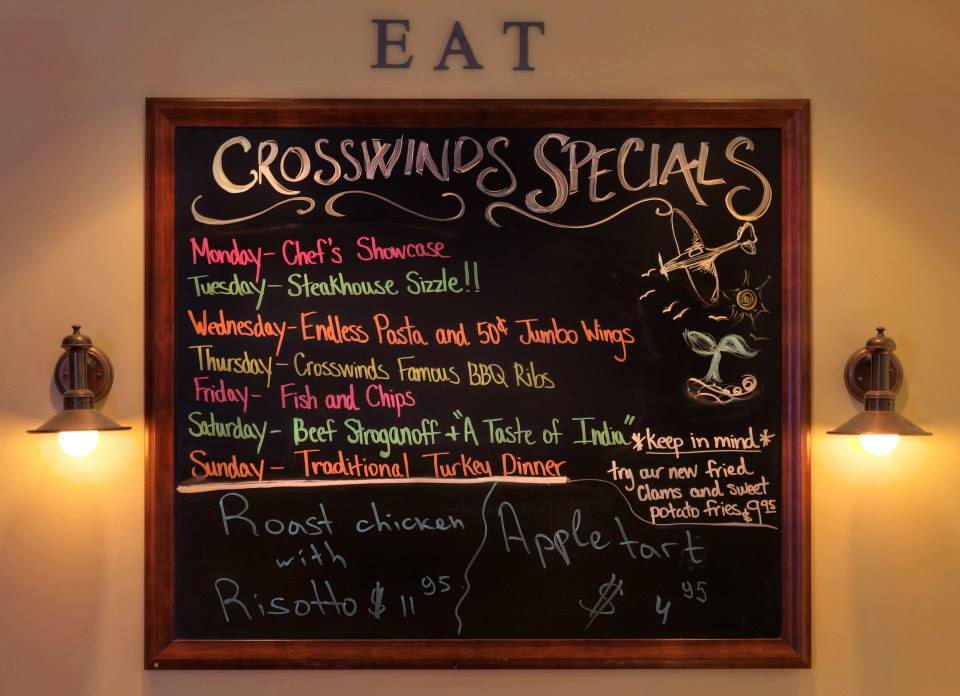 EAT
CROSSWINDS SPECIALS
Monday - Chef's Showcase
Tuesday - Steakhouse Sizzle!!
Wednesday - Endless Pasta and 50¢ Jumbo Wings
Thursday - Crosswinds Famous BBQ Ribs
Friday - Fish and Chips
Saturday - Beef Stroganoff + "A Taste of India"
Sunday - Traditional Turkey Dinner
*Keep in mind*
try our new fried
Clams and sweet
potato fries $9.95
Roast chicken
with
Risotto $ 11 95
Apple tart
$ 4 95